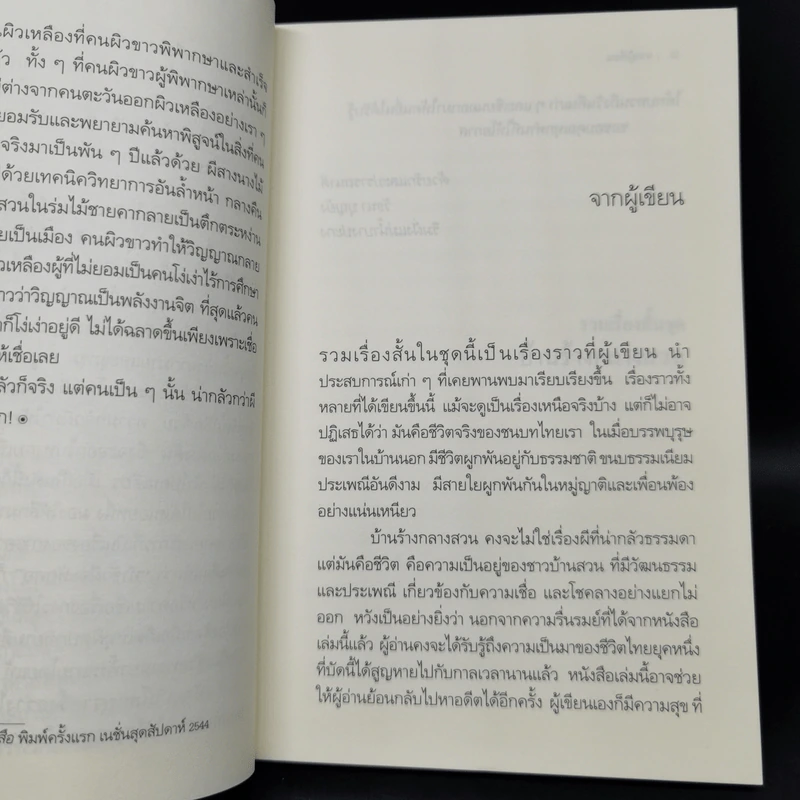 นผิวเหลืองที่คนผิวขาวพิพากษาและสำเร็จ
ทั้ง ๆ ที่คนผิวขาวผู้พิพากษาเหล่านั้นก็
ต่างจากคนตะวันออกผิวเหลืองอย่างเรา ๆ
ยอมรับและพยายามค้นหาพิสูจน์ในสิ่งที่คน
จริงมาเป็นพัน ๆ ปีแล้วด้วย ผีสางนางไม้
ด้วยเทคนิควิทยาการอันล้ำหน้า กลางคืน
สวนในร่มไม้ชายคากลายเป็นตึกตระหง่าน
ยเป็นเมือง คนผิวขาวทำให้วิญญาณกลาย
วเหลืองผู้ที่ไม่ยอมเป็นคนโง่เง่าไร้การศึกษา
าวว่าวิญญาณเป็นพลังงานจิต ที่สุดแล้วคน
ก็โง่เง่าอยู่ดี ไม่ได้ฉลาดขึ้นเพียงเพราะเชื่อ
ห้เชื่อเลย
ลัวก็จริง แต่คนเป็น ๆ นั้น น่ากลัวกว่าผี
ก!
สือ พิมพ์ครั้งแรก เนชั่นสุดสัปดาห์ 2544
จากผู้เขียน
รวมเรื่องสั้นในชุดนี้เป็นเรื่องราวที่ผู้เขียน นำ
ประสบการณ์เก่า ๆ ที่เคยพานพบมาเรียบเรียงขึ้น เรื่องราวทั้ง
หลายที่ได้เขียนขึ้นนี้ แม้จะดูเป็นเรื่องเหนือจริงบ้าง แต่ก็ไม่อาจ
ปฏิเสธได้ว่า มันคือชีวิตจริงของชนบทไทยเรา ในเมื่อบรรพบุรุษ
ของเราในบ้านนอก มีชีวิตผูกพันอยู่กับธรรมชาติ ขนบธรรมเนียม
ประเพณีอันดีงาม มีสายใยผูกพันกันในหมู่ญาติและเพื่อนพ้อง
อย่างแน่นเหนียว
บ้านร้างกลางสวน คงจะไม่ใช่เรื่องผีที่น่ากลัวธรรมดา
แต่มันคือชีวิต คือความเป็นอยู่ของชาวบ้านสวน ที่มีวัฒนธรรม
และประเพณี เกี่ยวข้องกับความเชื่อ และโชคลางอย่างแยกไม่
ออก หวังเป็นอย่างยิ่งว่า นอกจากความรื่นรมย์ที่ได้จากหนังสือ
เล่มนี้แล้ว ผู้อ่านคงจะได้รับรู้ถึงความเป็นมาของชีวิตไทยยุคหนึ่ง
ที่บัดนี้ได้สูญหายไปกับกาลเวลานานแล้ว หนังสือเล่มนี้อาจช่วย
ให้ผู้อ่านย้อนกลับไปหาอดีตได้อีกครั้ง ผู้เขียนเองก็มีความสุข ที่